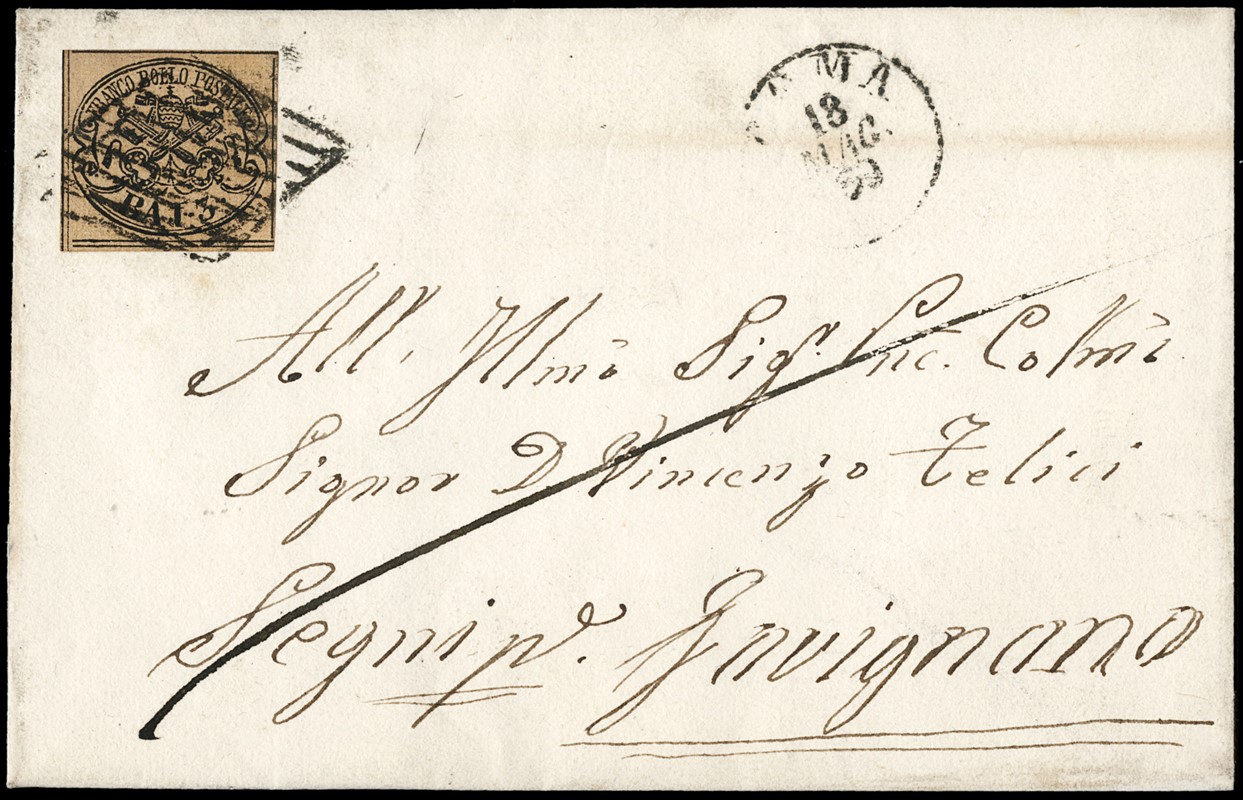 FRANCO BOLLO POSTALE
BAI·3
ROMA
18
MAG.
All' Illmo Sigr. Sigr. Colmo
Signor D Vincenzo Felici
Segni pr. Gavignano